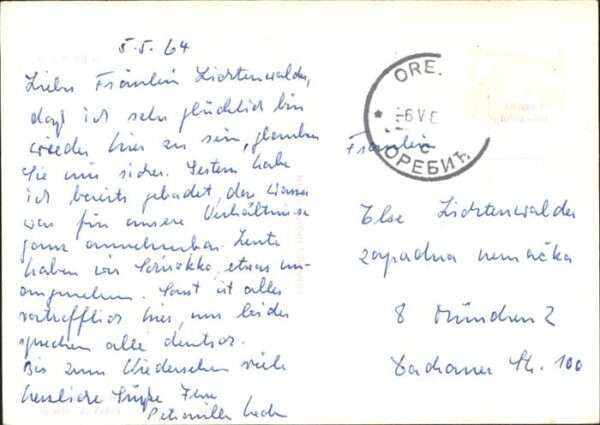 5.5.64
Liebes Fräulein Lichtenwalder,
daß ich sehr glücklich bin
wieder hier zu sein, glauben
Sie mir sicher. Gestern habe
ich bereits gebadet, das Wasser
war für unsere Verhältnisse
ganz annehmbar. Heute
haben wir Schirokko, etwas un-
angenehm. Sonst ist alles
vortrefflich hier, nur leider
sprechen alle deutsch.
Bis zum Wiedersehen viele
herzliche Grüße Ihre
ORE.
6 V 6
ОРЕБИЋ
Fräulein
Else Lichtenwalder
zapadna nemačka
8 München 2
Dachauer Str. 100